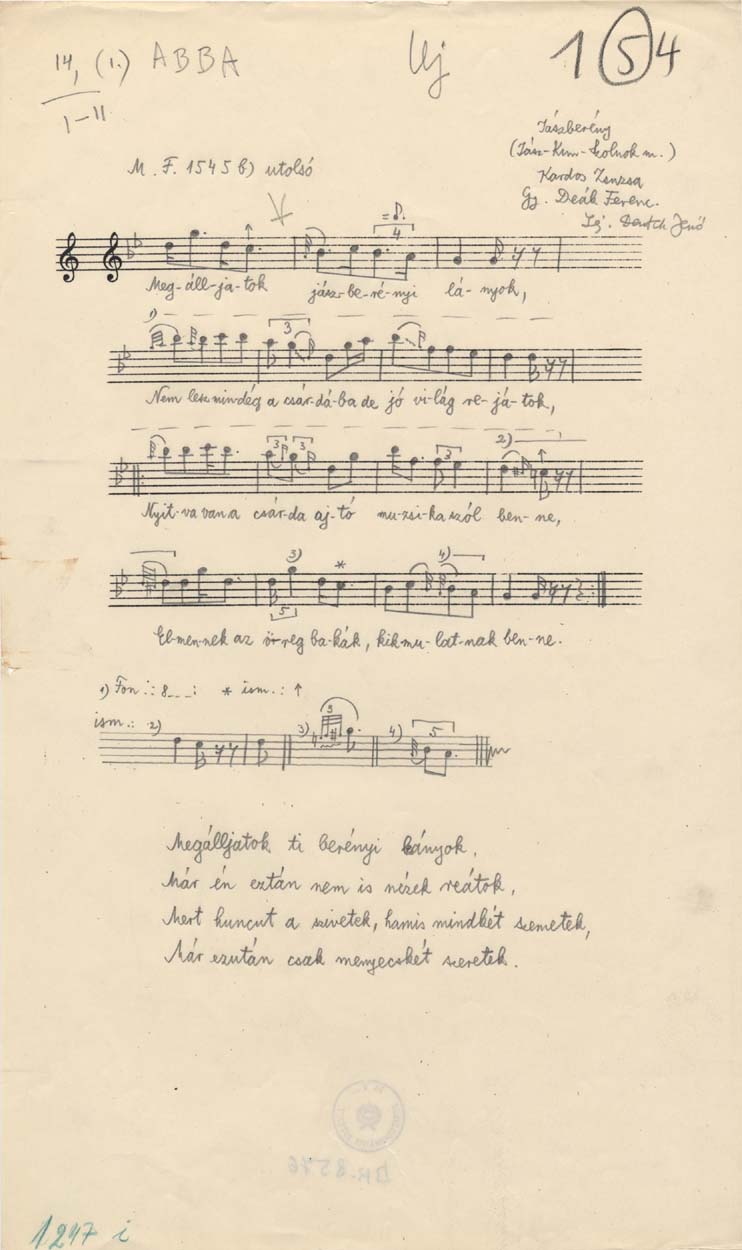 14, (1.) ABBA
I-II
Uj
1 5 4
Jászberény
(Jász-Kun-Szolnok m.)
Kardos Zsuzsa
Gy. Deák Ferenc.
Lej. Deutsch Jenő
M. F. 1545 b) utolsó
4
Meg-áll-ja-tok jász-be-ré-nyi lá-nyok,
1)
3
Nem lesz mindég a csár-dá-ba de jó vi-lág re-já-tok,
3 3 3 2)
Nyit-va van a csár-da aj-tó mu-zsi-ka szól ben-ne,
3) * 4)
5
El-men-nek az ör-reg ba-kák, kik mu-lat-nak ben-ne.
1) Fon .: 8_ _ _ : * ism.: ↑
ism.: 2) 3) 3 4) 5
Megálljatok ti berényi lányok,
Már én eztán nem is nézek reátok,
Mert huncut a szivetek, hamis mindkét szemetek,
Már ezután csak menyecskét szeretek.
1247 i